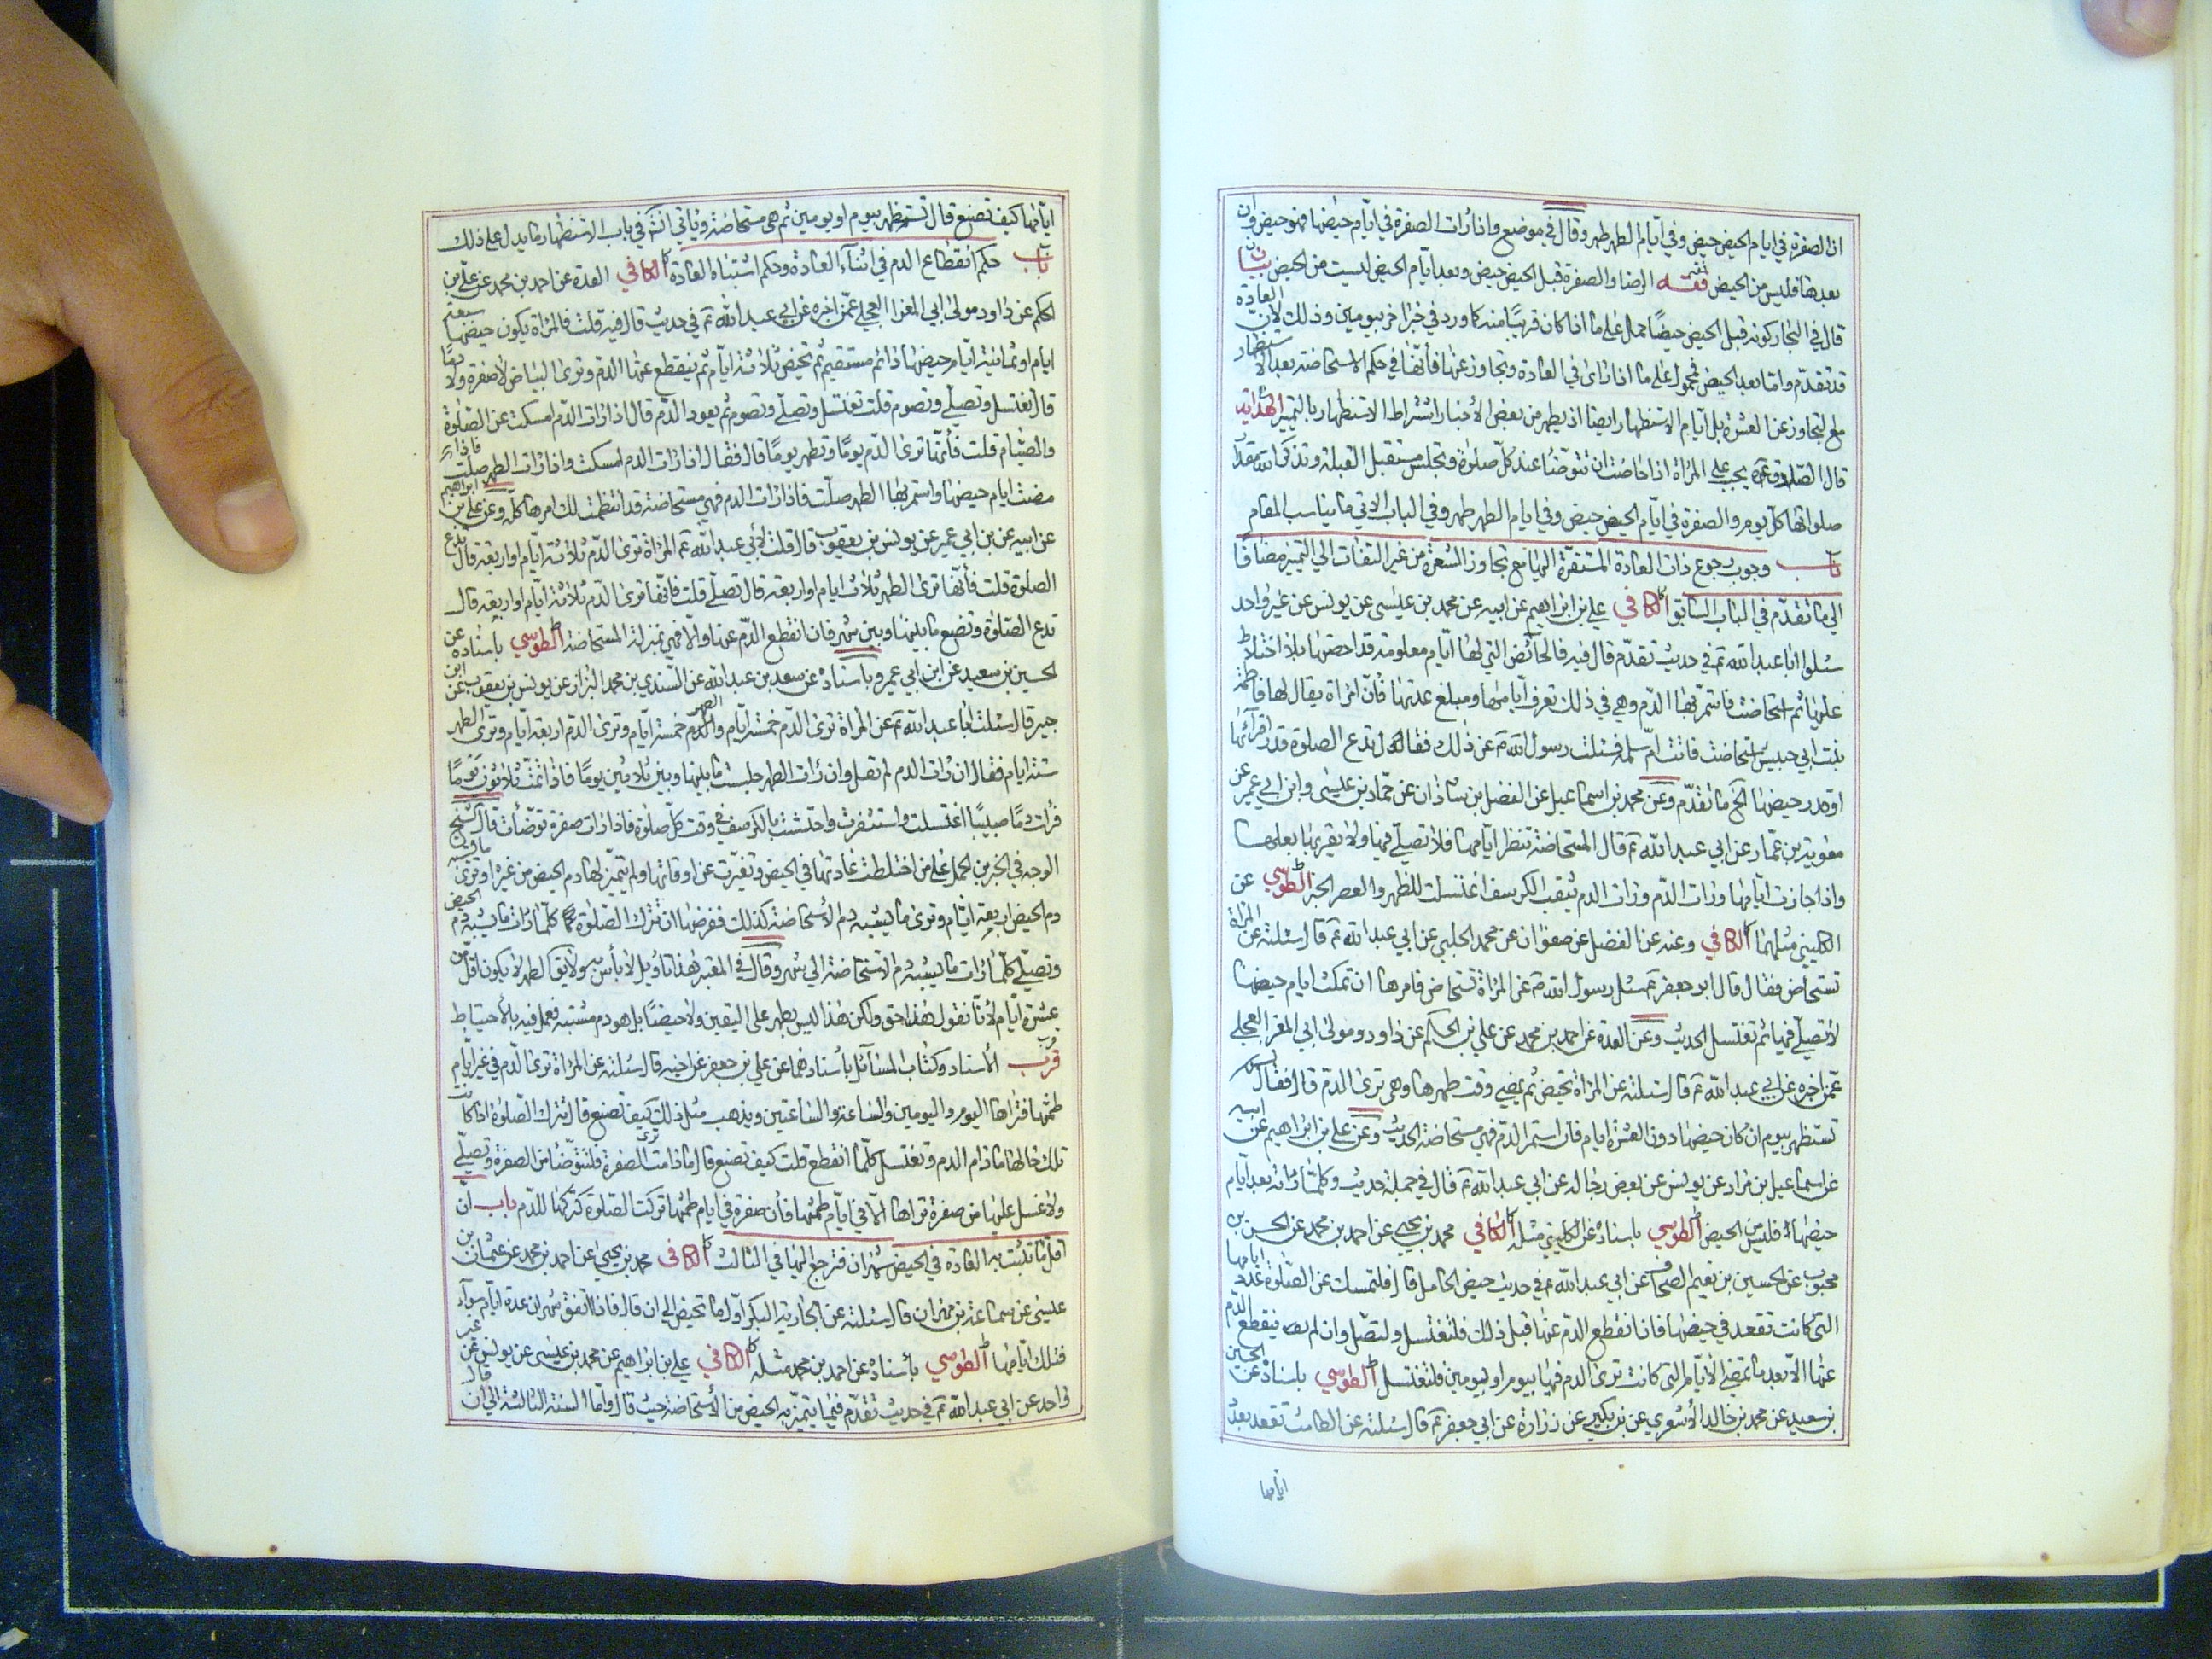 ان الصفرة في ايام الحيض حيض وفي ايام الطهر طهر وقال في موضع واذا رات الصفرة في ايام حيضها فهو حيض وان
بعدها فليس من الحيض فقه الرضا والصفرة قبل الحيض حيض وبعد ايام الحيض ليست من الحيض بيان
قال في البحار كونه قبل الحيض حيضا حمل على ما اذا كان قريبا منه كما ورد في خبر اخر بيومين وذلك لان العادة
قد تقدم واما بعد الحيض فمحمول على ما اذا راى في العادة وتجاوز عنها فانها في حكم الاستحاضة بعد الاستظهار
مع التجاوز عن العشرة بل ايام الاستظهار ايضا اذ يظهر من بعض الاخبار اشتراط الاستظهار بالتميز الهداية
قال الصدوق يجب على المراة اذا حاضت ان تتوضا عند كل صلوة وتجلس مستقبل القبلة وتذكر الله مقدار
صلواتها كل يوم والصفرة في ايام الحيض حيض وفي ايام الطهر طهر وفي الباب الاتي ما يناسب المقام
باب وجوب رجوع ذات العادة المستقرة اليها مع تجاوز العشرة من غير التفات الى التميز مضافا
الى ما تقدم في الباب السابق الكافي علي بن ابراهيم عن ابيه عن محمد بن عيسى عن يونس عن غير واحد
سئلوا ابا عبد الله ع في حديث تقدم قال فيه فالحائض التي لها ايام معلومة قد احصتها بلا اختلاط
عليها ثم استحاضت فاستمر بها الدم وهي في ذلك تعرف ايامها ومبلغ عددها فان امراة يقال لها فاطمة
بنت ابي حبيش استحاضت فاتت ام سلمة فسئلت رسول الله ص عن ذلك فقال تدع الصلوة قدر اقرائها
او قدر حيضها الخ ما تقدم وعن محمد بن اسماعيل عن الفضل بن شاذان عن حماد بن عيسى وابن ابي عمير عن
معوية بن عمار عن ابي عبد الله ع قال المستحاضة تنظر ايامها فلا تصلي فيها ولا يقربها بعلها
واذا جازت ايامها ورات الدم ورات الدم يثقب الكرسف اغتسلت للظهر والعصر الخبر الطوسي عن
الكليني مثلهما الكافي وعنه عن الفضل عن صفوان عن محمد الحلبي عن ابي عبد الله ع قال سئلته عن المراة
تستحاض فقال قال ابو جعفر ع سئل رسول الله ص عن المراة تستحاض فامرها ان تمكث ايام حيضها
لا تصلي فيها ثم تغتسل الحديث وعن العدة عن احمد بن محمد عن علي بن الحكم عن داود مولى ابي المغرا العجلي
عمن اخبره عن ابي عبد الله ع قال سئلته عن المراة تحيض ثم يمضي وقت طهرها وهي ترى الدم قال فقال
تستظهر بيوم ان كان حيضها دون العشرة ايام فان استمر الدم فهي مستحاضة الحديث وعن علي بن ابراهيم عن ابيه
عن اسماعيل بن مرار عن يونس عن بعض رجاله عن ابي عبد الله ع قال في جملة حديث وكلما راته بعد ايام
حيضها فليس من الحيض الطوسي باسناده عن الكليني مثله الكافي محمد بن يحيى عن احمد بن محمد عن الحسن بن
محبوب عن الحسين بن نعيم الصحاف عن ابي عبد الله ع في حديث حيض الحامل قال فلتمسك عن الصلوة عدد ايامها
التي كانت تقعد في حيضها فان انقطع الدم عنها قبل ذلك فلتغتسل ولتصل وان لم ينقطع الدم
عنها الا بعد ما تمضي الايام التي كانت ترى الدم فيها بيوم او يومين فلتغتسل الطوسي باسناده عن الحسين
بن سعيد عن محمد بن خالد الاشعري عن بن بكير عن زرارة عن ابي جعفر ع قال سئلته عن الطامث تقعد بعدد
ايامها
ايامها كيف تصنع قال تستظهر بيوم او يومين ثم هي مستحاضة وياتي انشه في باب الاستظهار ما يدل على ذلك
باب حكم انقطاع الدم في اثناء العادة وحكم اشتباه العادة الكافي العدة عن احمد بن محمد عن علي بن
الحكم عن داود مولى ابي المغرا العجلي عمن اخبره عن ابي عبد الله ع في حديث قال فيه قلت فالمراة يكون حيضها سبعة
ايام او ثمانية ايام حيضها دائم مستقيم ثم تحيض ثلاثة ايام ثم ينقطع عنها الدم وترى البياض لا صفرة ولا دما
قال تغتسل وتصلي وتصوم قلت تغتسل وتصلي وتصوم ثم يعود الدم قال اذا رات الدم امسكت عن الصلوة
والصيام قلت فانها ترى الدم يوما وتطهر يوما قال فقال اذا رات الدم امسكت واذا رات الطهر صلت فاذا
مضت ايام حيضها واستمر بها الطهر صلت فاذا رات الدم فهي مستحاضة قد انتظمت لك امرها كله وعن علي بن ابراهيم
عن ابيه عن بن ابي عمير عن يونس بن يعقوب قال قلت لابي عبد الله ع المراة ترى الدم ثلاثة ايام او اربعة قال تدع
الصلوة قلت فانها ترى الطهر ثلاث ايام او اربعة قال تصلي قلت فانها ترى الدم ثلاثة ايام او اربعة قال
تدع الصلوة وتصنع ما بينها وبين شهر فان انقطع الدم عنها والا فهي بمنزلة المستحاضة الطوسي باسناده عن
الحسين بن سعيد عن ابن ابي عمير وباسناده عن سعد بن عبد الله عن السندي بن محمد البزاز عن يونس بن يعقوب عن ابي
بصير قال سئلت ابا عبد الله ع عن المراة ترى الدم خمسة ايام والطهر خمسة ايام وترى الدم اربعة ايام وترى الطهر
ستة ايام فقال ان رات الدم لم تصل وان رات الطهر جلست ما بينها وبين ثلاثين يوما فاذا تمت ثلاثون يوما
فرات دما صبيبا اغتسلت واستثفرت واحتشت بالكرسف في وقت كل صلوة فاذا رات صفرة توضات قال الشيخ
الوجه في الخبرين الحمل على من اختلطت عادتها في الحيض وتغيرت عن اوقاتها ولم يتميز لها دم الحيض من غيره او ترى ما يشبه
دم الحيض اربعة ايام وترى ما يشبه دم الاستحاضة كذلك ففرضها ان تترك الصلوة كلما رات ما يشبه دم الحيض
وتصلي كلما رات ما يشبه دم الاستحاضة الى شهر وقال في المعتبر هذا تاويل لا باس به ولا يق الطهر لا يكون اقل من
عشرة ايام لانا نقول هذا حق ولكن هذا ليس بطهر على اليقين ولا حيضا بل هو دم مشتبه فعمل فيه بالاحتياط
قرب الاسناد وكتاب المسائل باسنادهما عن علي بن جعفر عن اخيه قال سئلته عن المراة ترى الدم في غير ايام
طمثها فتراها اليوم واليومين والساعة والساعتين ويذهب مثل ذلك كيف تصنع قال تترك الصلوة اذا كانت
تلك حالها ما دام الدم وتغتسل كلما انقطع قلت كيف تصنع قال ما دامت ترى الصفرة فلتتوضا من الصفرة وتصلي
ولا غسل عليها من صفرة تراها الا في ايام طمثها فان صفرة في ايام طمثها تركت الصلوة كتركها للدم باب ان
اقل ما تثبت به العادة في الحيض شهران فترجع اليها في الثالث الكافي محمد بن يحيى عن احمد بن محمد عن عثمان بن
عيسى عن سماعة بن مهران قال سئلته عن الجارية البكر اول ما تحيض الى ان قال فاذا اتفق شهران عدة ايام سواء
فتلك ايامها الطوسي باسناده عن احمد بن محمد مثله الكافي علي بن ابراهيم عن محمد بن عيسى عن يونس عن غير
واحد عن ابي عبد الله ع في حديث تقدم فيما يتميز به الحيض من الاستحاضة حيث قال واما السنة الثالثة الى ان قال